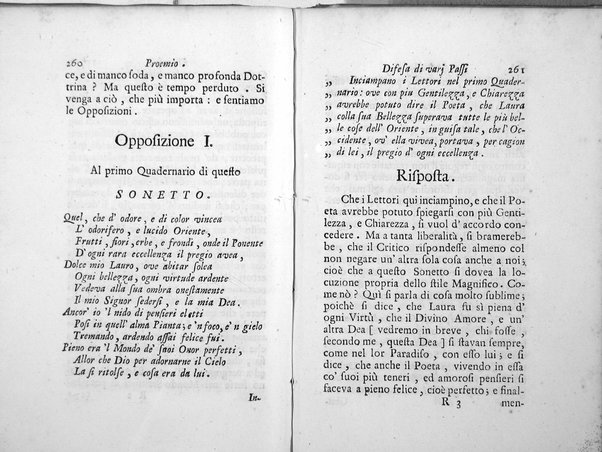 260 Proemio.
ce, e di manco soda, e manco profonda Dot-
trina? Ma questo è tempo perduto. Si
venga a ciò, che più importa: e sentiamo
le Opposizioni.
Opposizione I.
Al primo Quadernario di questo
SONETTO.
Quel, che d' odore, e di color vincea
L' odorifero, e lucido Oriente,
Frutti, fiori, erbe, e frondi, onde il Ponente
D' ogni rara eccellenza il pregio avea,
Dolce mio Lauro, ove abitar solea
Ogni bellezza, ogni virtude ardente
Vedeva alla sua ombra onestamente
Il mio Signor sedersi, e la mia Dea.
Ancor' io 'l nido di pensieri eletti
Posi in quell' alma Pianta; e 'n foco, e 'n gielo
Tremando, ardendo assai felice fui.
Pieno era 'l Mondo de' suoi Onor perfetti,
Allor che Dio per adornarne il Cielo
La si ritolse, e cosa era da lui.
In-
Difesa di varj Passi 261
„ Inciampano i Lettori nel primo Quader-
„ nario: ove con piu Gentilezza, e Chiarezza
„ avrebbe potuto dire il Poeta, che Laura
„ colla sua Bellezza superava tutte le più bel-
„ le cose dell' Oriente, in guisa tale, che l' Oc-
„ cidente, ov' ella vivea, portava, per cagion
„ di lei, il pregio d' ogni eccellenza.
Risposta.
Che i Lettori qui inciampino, e che il Po-
eta avrebbe potuto spiegarsi con più Genti-
lezza, e Chiarezza, si vuol d' accordo con-
cedere. Ma a tanta liberalità, si bramereb-
be, che il Critico rispondesse almeno col
non negare un' altra sola cosa anche a noi;
cioè che a questo Sonetto si dovea la lo-
cuzione propria dello stile Magnifico. Co-
me nò? Quì si parla di cosa molto sublime;
poichè si dice, che Laura fu sì piena d'
ogni Virtù, che il Divino Amore, e un'
altra Dea [ vedremo in breve, chi fosse,
secondo me, questa Dea ] si stavan sempre,
come nel lor Paradiso, con esso lui; e si
dice, che anche il Poeta, vivendo in essa
co' suoi più teneri, ed amorosi pensieri si
faceva a pieno felice, cioè perfetto; e final-
R 3 men-